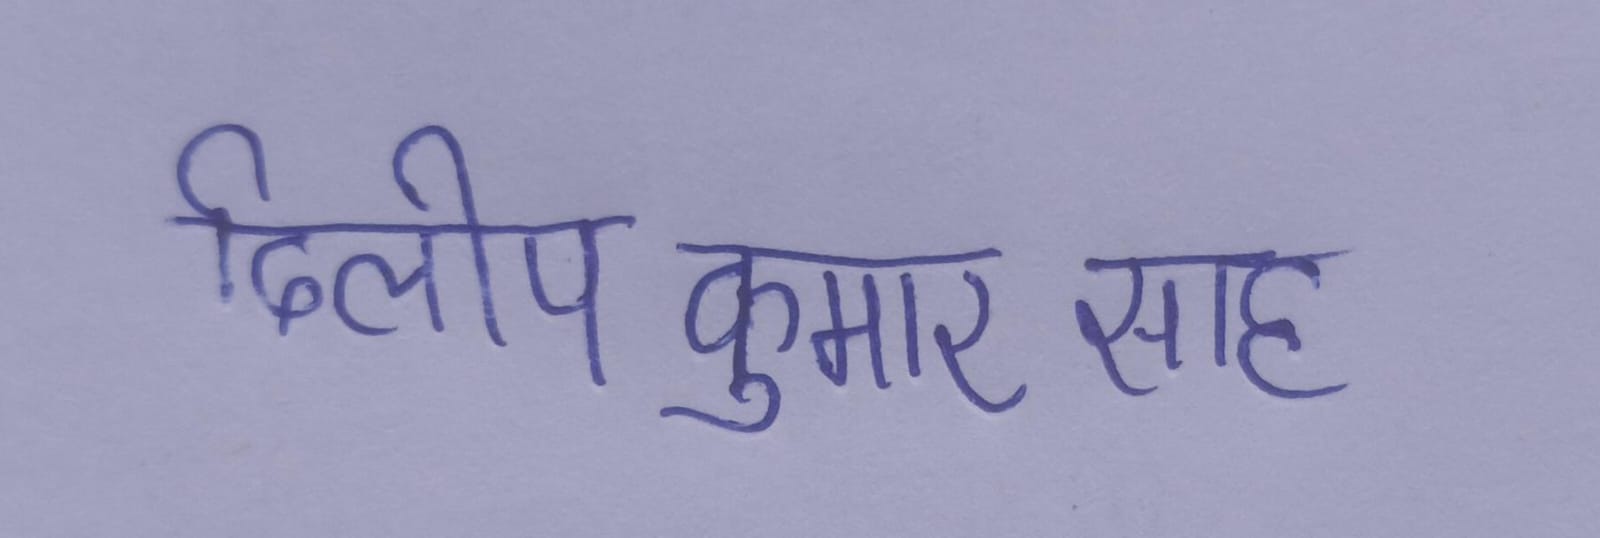 दिलीप कुमार साह